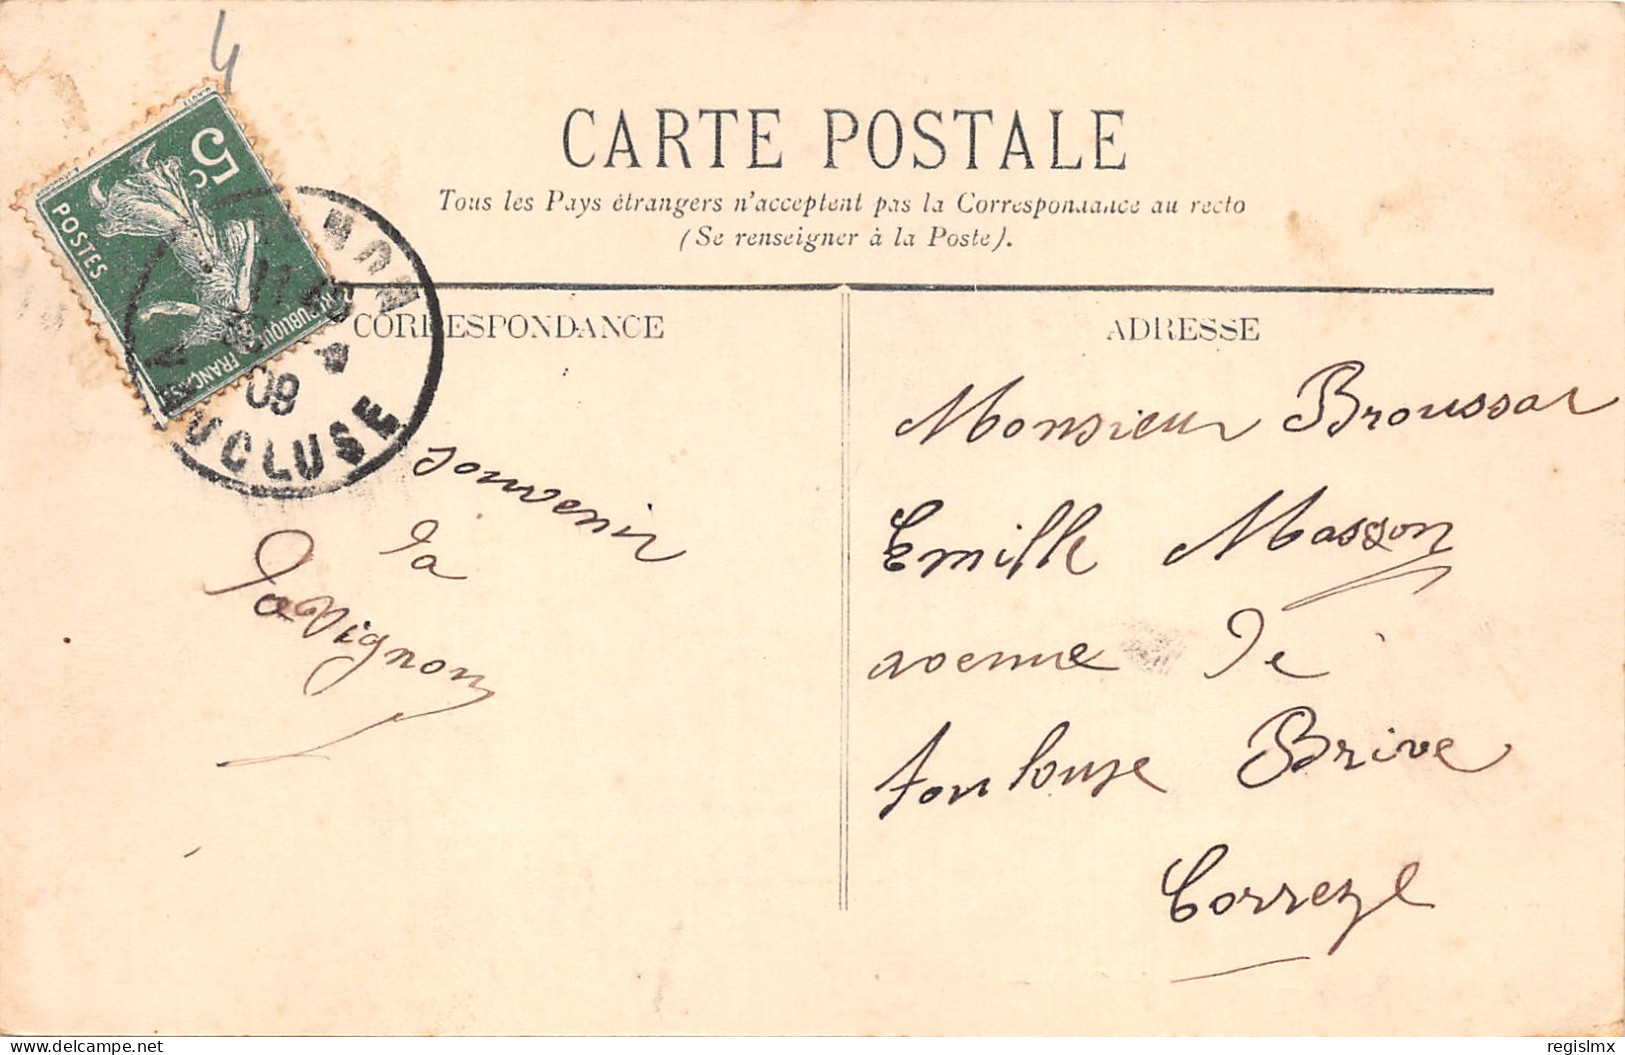 4
5c
POSTES
REPUBLIQUE FRANÇAISE
VAUCLUSE
09
CARTE POSTALE
Tous les Pays étrangers n'acceptent pas la Correspondance au recto
(Se renseigner à la Poste).
CORRESPONDANCE
souvenir
da
davignon
ADRESSE
Monsieur Broussar
Emille Masson
avenue de
toulouse Brive
Correze
delcampe.net
regislmx